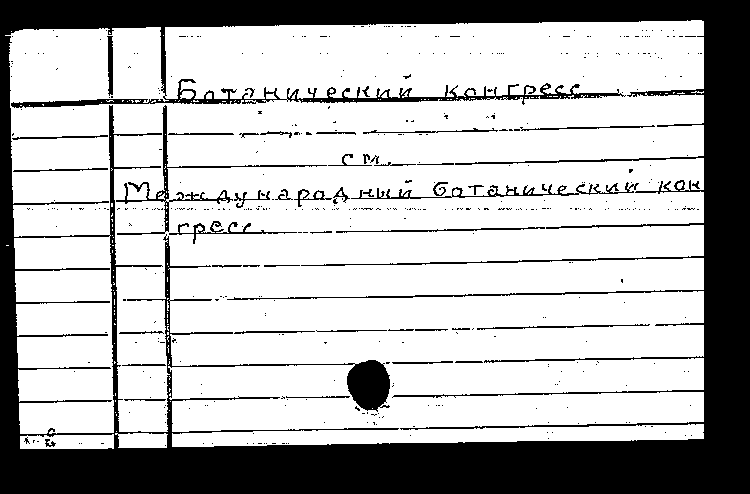 Ботанический конгресс
см.
Международный ботанический кон
гресс.